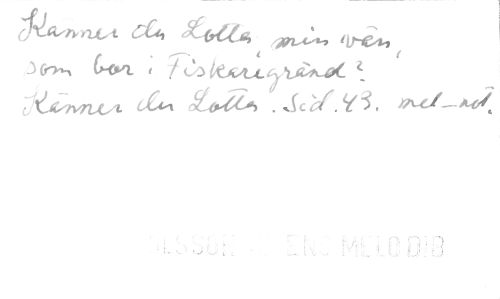 Känner du Lotta, min vän,
som bor i Fiskaregränd?
Känner du Lotta. Sid. 43. mel-not.
MELODIB